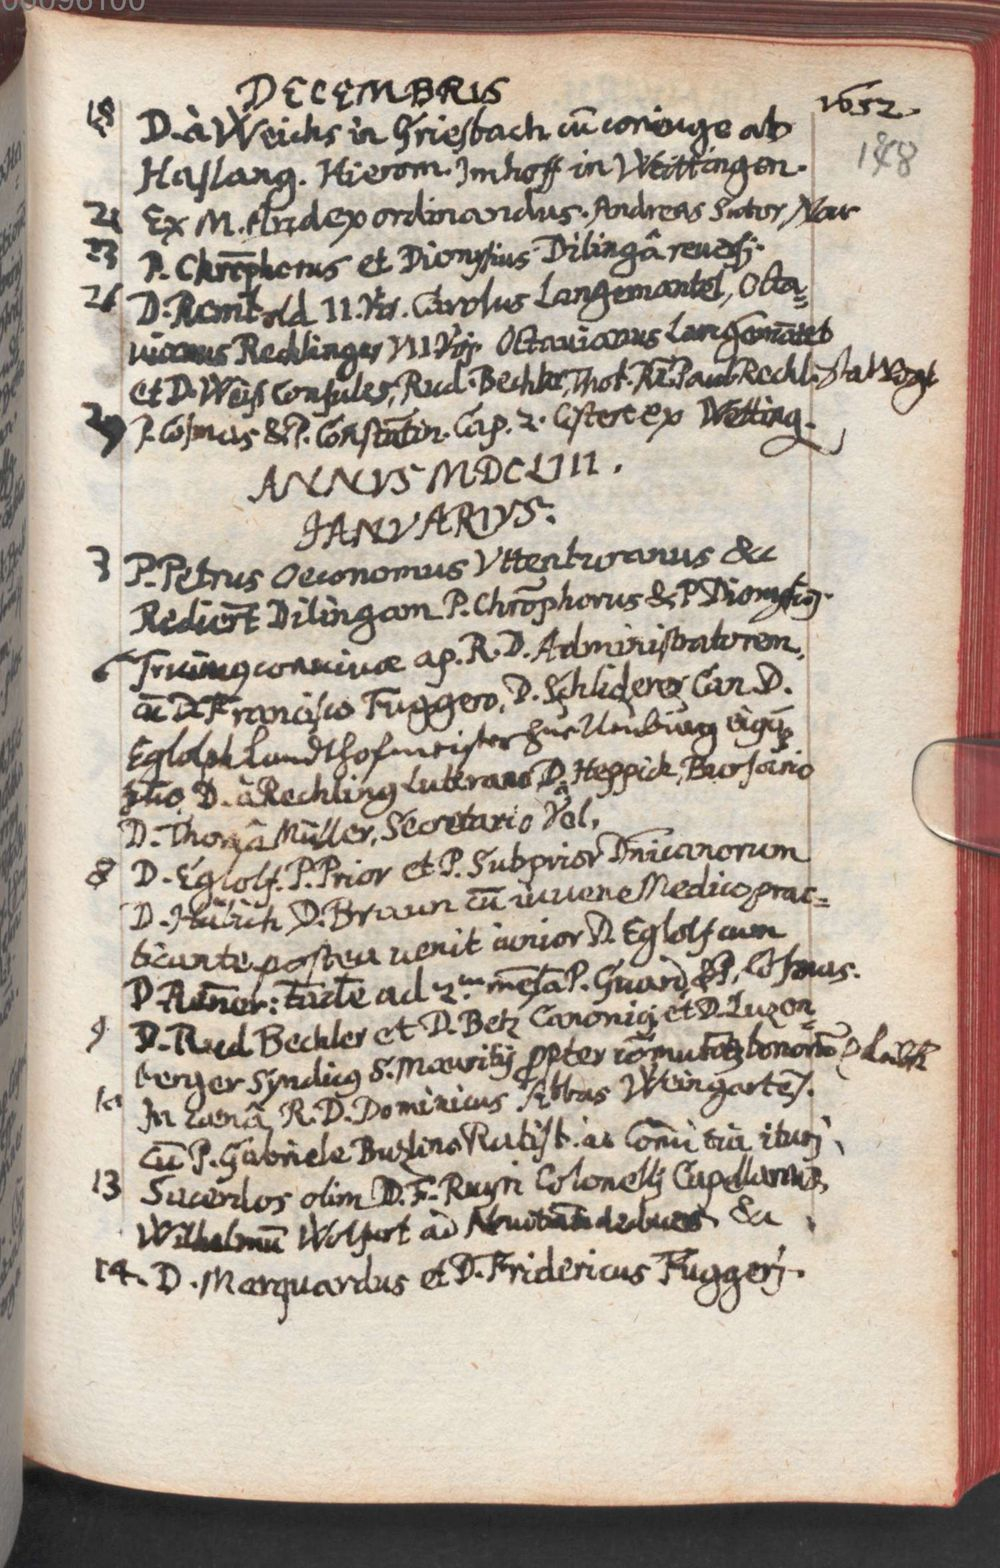 00096100
DECEMBRIS 1652.
148
18 D. à Weichs in Griesbach cũ coniuge ab
Haslang. Hierom. Imhoff in Weittingen.
21 Ex M. ordinandus. Andreas Sutor
23 P. Chrõphorus et Dionysius Dilingâ reversi.
26 D. Rembold II. Vir. Carolus Langemantel, Octa=
vianus Rechlinger VI Viri Octavianus Langemãtel
et D. Weis Consules, Rud. Bechler, Paul. Rechl. Vogt
29 P. Cosmas & P. Constãtin. Cap. 2. Cisterc ex Wetting.
ANNVS MDCLIII.
IANVARIVS.
3 P. Petrus Oeconomus Vttenburanus &c
Rediert Dilingam P. Chrõphorus & P Dionysius.
6 convivae ap. R. D. Administratorem,
cũ D. Francisco Fuggero, D. Schliderer Can. D.
Eglolph Landthofmeister zue Neuburg eiusq
filio D. à Rechling Lutherano D. Heppick, Bursario
D. Thomâ Müller, Secretario Val.
8 D. Eglolf. P. Prior et P. Subprior Dñicanorum
D. D. Braun cũ iuvene Medico prac=
ticante postea venit iunior D. Eglolf cum
D. ad 2.am mẽsã P. Guard. & P. Cosmas.
9 D. Rud Bechler et D. Betz Canonici et D. Luzen=
berger Syndicus S. Mauritij propter bonorũ
10 In caenâ R. D. Dominicus Abbas Weingartẽs.
cũ P. Gabriele Buzlino Ratisb. ad Comitia ituri
13 Sacerdos olim D. F. Colonelli Capellanus,
Wilhelmũ Wolfurt ad &c
14. D. Marquardus et D. Fridericus Fuggeri.